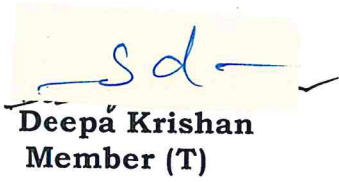 sd
Deepa Krishan
Member (T)